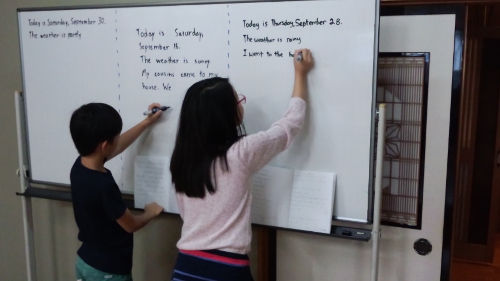 Today is Saturday, September 30.
The weather is partly
Today is Saturday,
September 16.
The weather is sunny.
My cousins came to my
house. We
Today is Thursday, September 28.
The weather is rainy.
I went to the